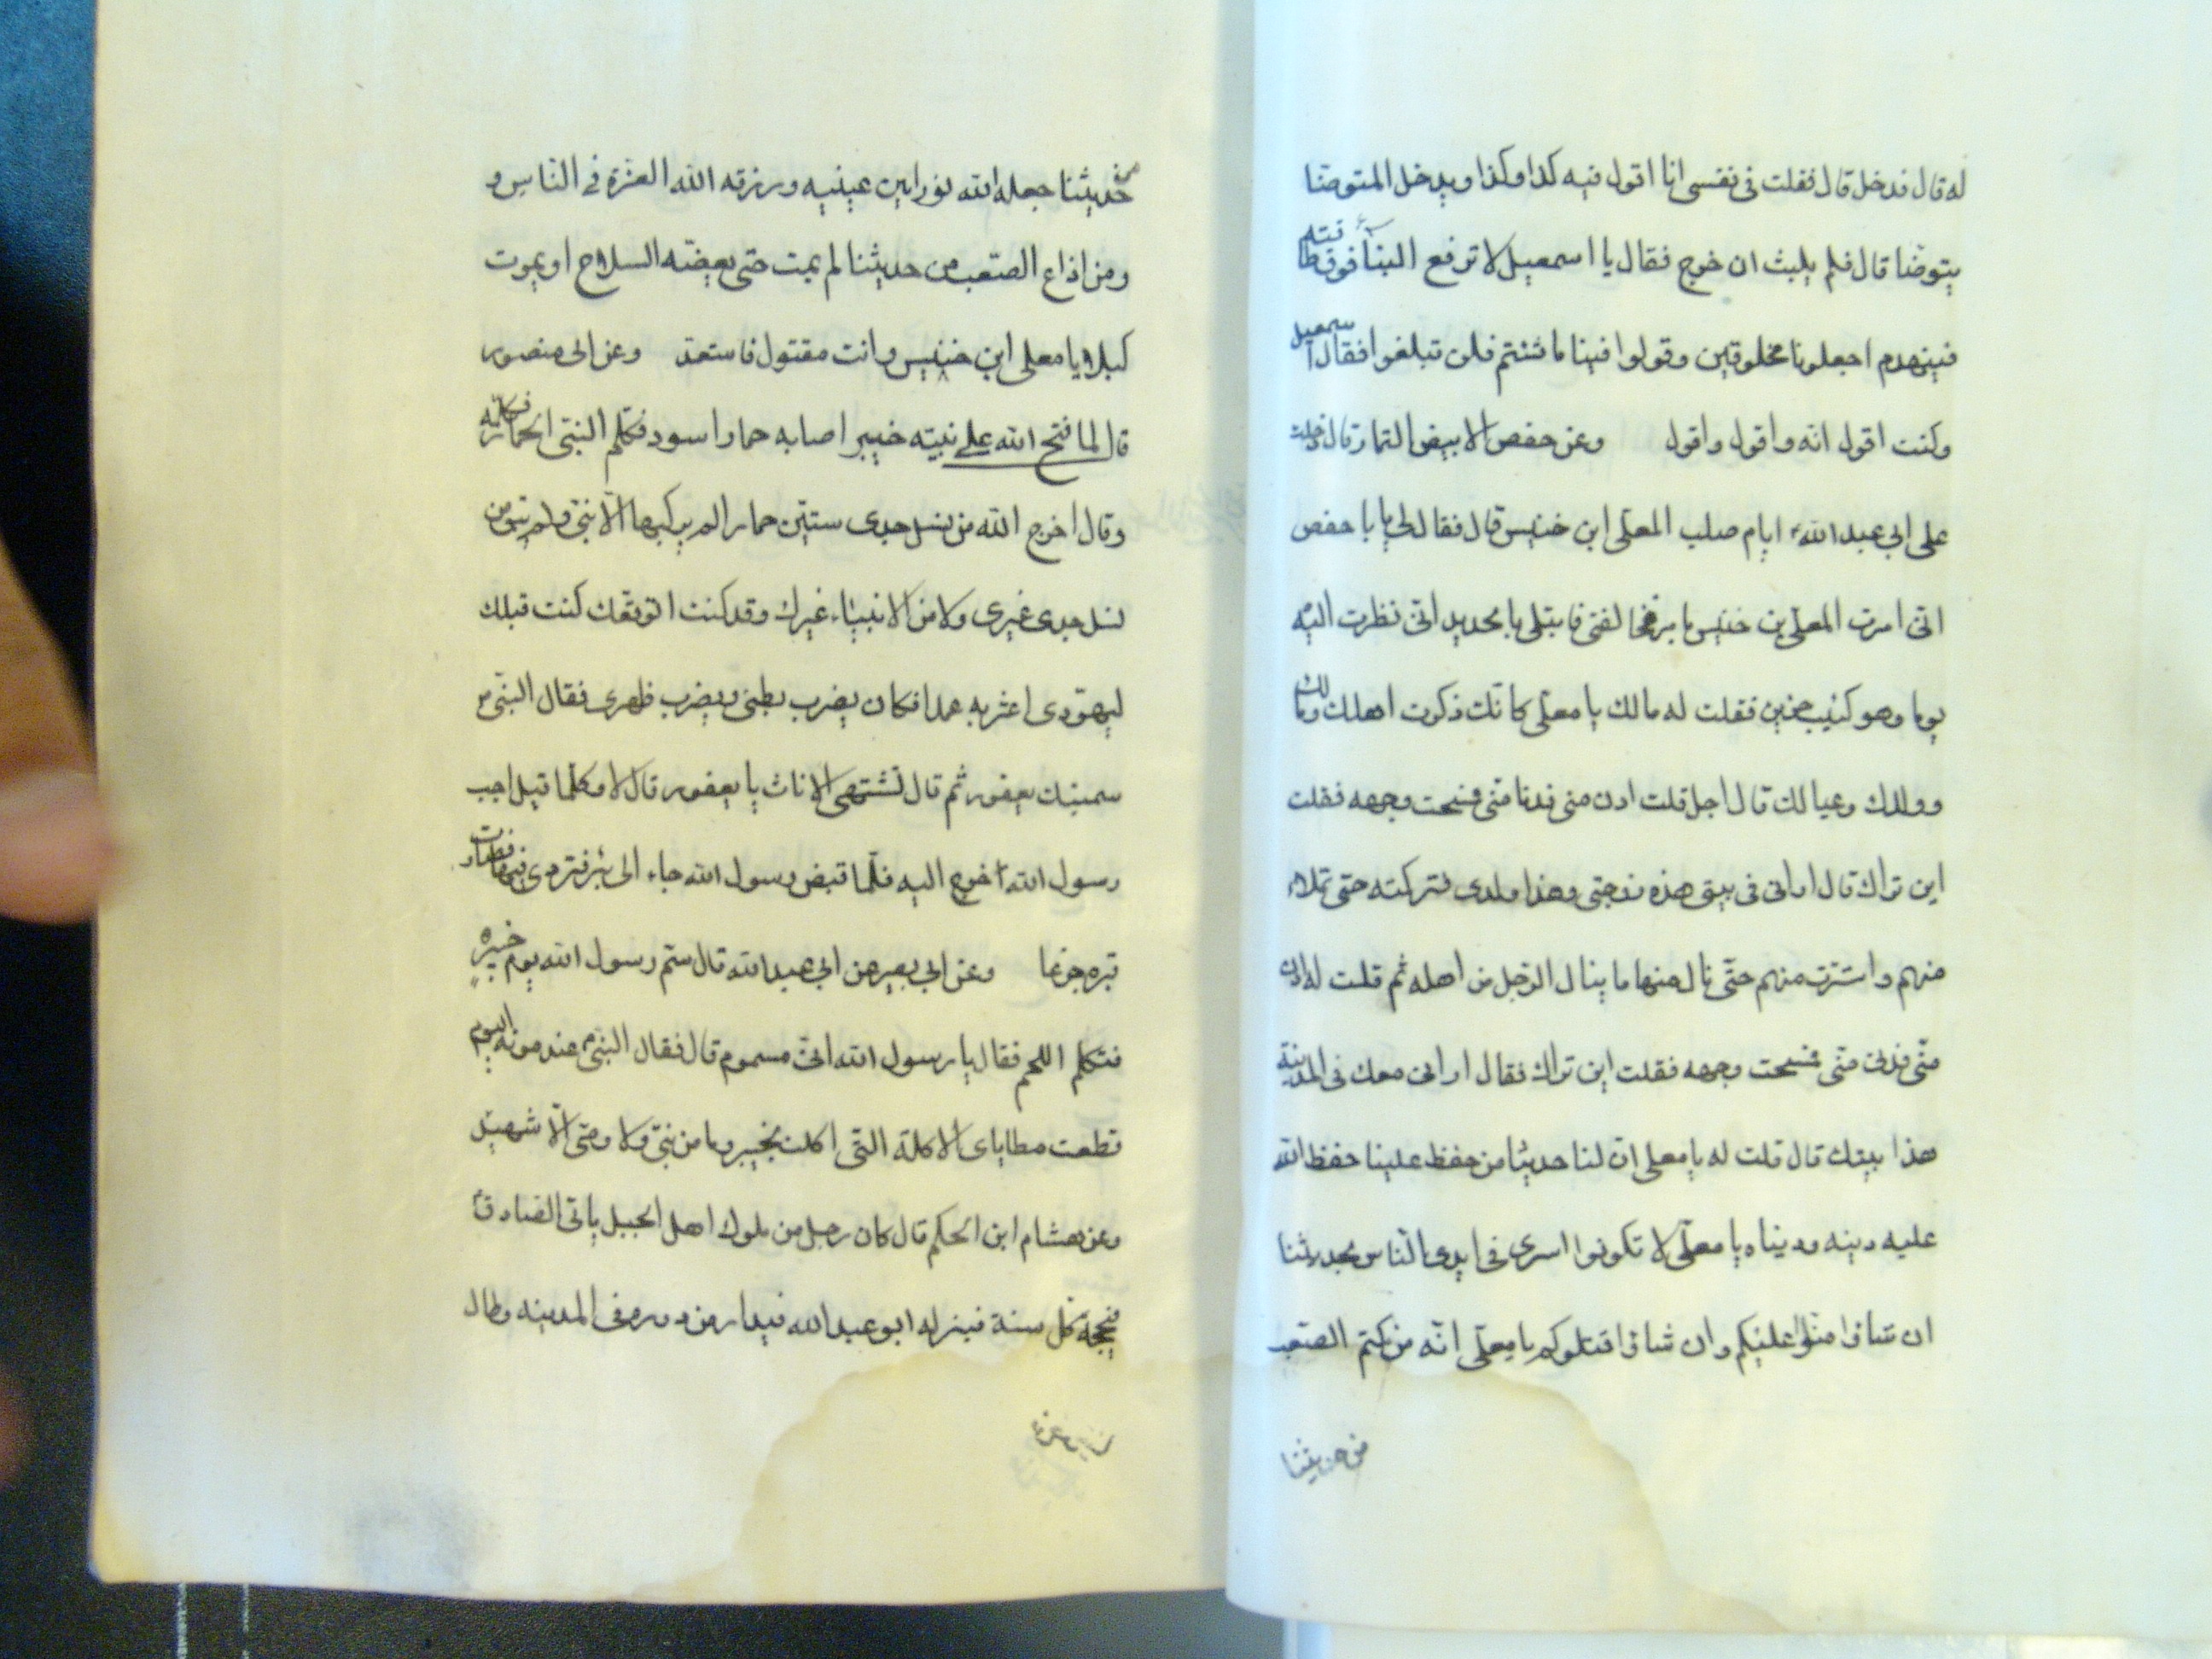 له قال فدخل قال فقلت فى نفسى انا اقول فيه كذا وكذا ويدخل المتوضا
يتوضا قال فلم يلبث ان خرج فقال يا اسمعيل لا ترفع البنآء فوق طاقته
فينهدم اجعلونا مخلوقين وقولوا فينا ما شئتم فلن تبلغوا فقال اسمعيل
وكنت اقول انه واقول واقول وعن حفص الابيض التمار قال دخلت
على ابى عبد الله ايام صلب المعلى ابن خنيس قال فقال لى يا با حفص
انى امرت المعلى بن خنيس بامر فخالفنى فابتلى بالحديد انى نظرت اليه
يوما وهو كئيب حزين فقلت له مالك يا معلى كانك ذكرت اهلك ومالك
وولدك وعيالك قال اجل قلت ادن منى فدنا منى فمسحت وجهه فقلت
اين تراك قال ارانى فى بيتى هذه زوجتى وهذا ولدى فتركته حتى تملاء
منهم واستترت منهم حتى نال منها ما ينال الرجل من اهله ثم قلت له ادن
منى فدنى منى فمسحت وجهه فقلت اين تراك فقال ارانى معك فى المدينة
هذا بيتك قال قلت له يا معلى ان لنا حديثا من حفظ علينا حفظ الله
عليه دينه ودنياه يا معلى لا تكونوا اسرى فى ايدى الناس بحديثنا
ان شاؤا منوا عليكم وان شاؤا قتلوكم يا معلى انه من كتم الصعب
من حديثنا
من حديثنا جعله الله نورا بين عينيه ورزقه الله العزة فى الناس و
ومن اذاع الصعب من حديثنا لم يمت حتى يعضه السلاح او يموت
كبلا يا معلى ابن خنيس وانت مقتول فاستعد وعن ابى منصور
قال لما فتح الله على نبيه خيبر اصابه حمارا اسود فكلم النبى الحمار فكلمه
وقال اخرج الله من نسل جدى ستين حمارا لم يركبها الا نبى ولم يبق من
نسل جدى غيرى ولا من الانبياء غيرك وقد كنت اتوقعك كنت قبلك
ليهودى اعثر به عمدا فكان يضرب بطنى ويضرب ظهرى فقال النبى
سميتك يعفور ثم قال تشتهى الاناث يا يعفور قال لا وكلما قيل اجب
رسول الله خرج اليه فلما قبض رسول الله جاء الى بئر فتردى فيها فصارت
قبره جزعا وعن ابى بصير عن ابى عبد الله قال ستم رسول الله يوم خيبر
فتكلم اللحم فقال يا رسول الله انى مسموم قال فقال النبى عند موته اليوم
قطعت مطاياى الاكلة التى اكلت بخيبر وما من نبى ولا وصى الا شهيد
وعن هشام ابن الحكم قال كان رجل من ملوك اهل الجبل ياتى الصادق
فى حجة كل سنة فينزله ابو عبد الله فى دار من دوره فى المدينه وطال